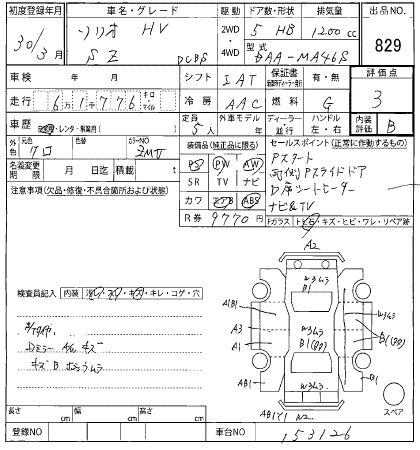 初度登録年月 車名・グレード 駆動 ドア数・形状 排気量 出品NO.
30/3月 ソリオ HV 2WD・4WD 5 HB 1200cc 829
SZ DCBS 型式 DAA-MA46S
車検 年 月 シフト IAT 保証書 有・無 評価点
走行 6万1千776 キロ マイル 冷房 AAC 燃料 G 3
車歴 自家用・レンタ・事業用( ) 定員 5人 外車モデル 年 ディーラー・並行 ハンドル 左・右 内装評価 B
外色 元色 クロ 色替 カラーNO ZMV 装備品(純正品に限る) セールスポイント(正常に作動するもの)
名義変更期限 月 日迄 積載 t
PS PW AW
SR TV ナビ
カワ エアB ABS
R券 9770円
Pスタート
両側Pスライドドア
D席シートヒーター
ナビ&TV
注意事項(欠品・修復・不具合箇所および状態)
Fガラス トビキ・キズ・ヒビ・ワレ・リペア跡
検査員記入 内装 ヨゴレ・スレ・キズ・キレ・コゲ・穴
Dミラー
キズB
A2
W3ムラ
A1B1
B1
W3ムラ
A3
A1
B1
AB1
W3ムラ
B1
AB1Y1
A2
スペア
長さ cm 幅 cm 高さ cm
登録NO 車台NO 153126